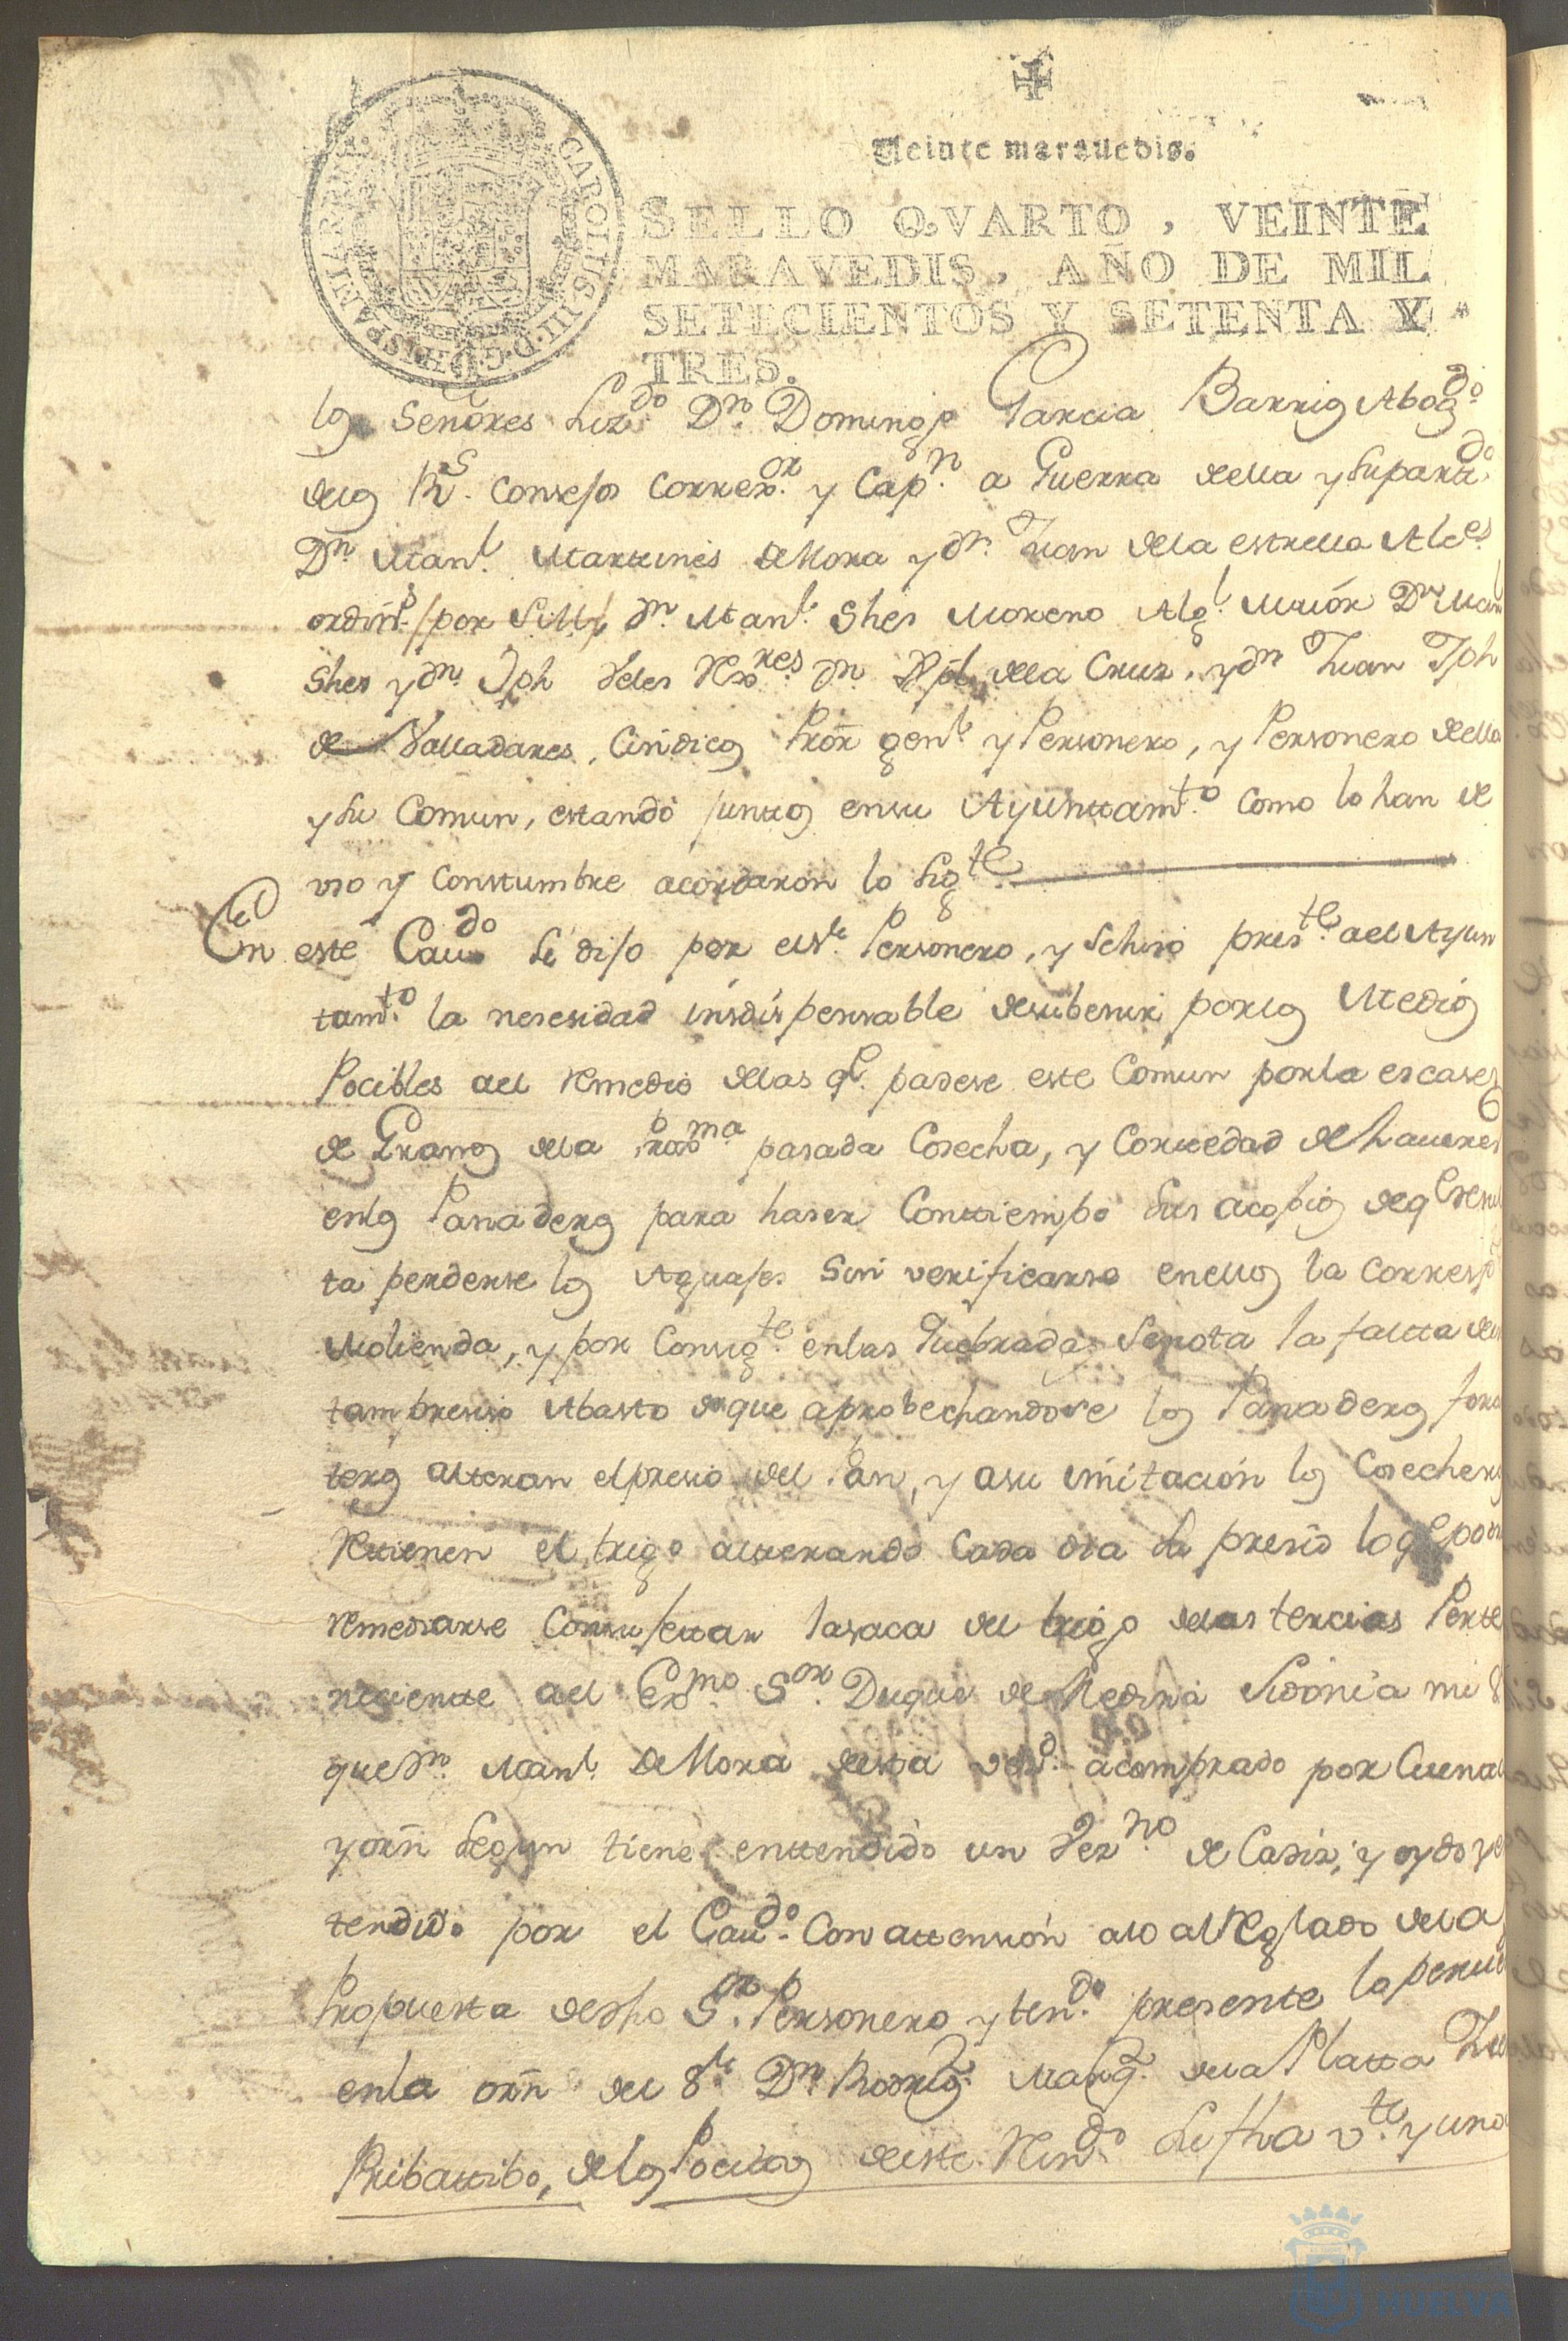 Veinte marauedis.
CAROLUS III D.G. HISPANIAR REX
SELLO QVARTO, VEINTE
MARAVEDIS, AÑO DE MIL
SETECIENTOS Y SETENTA Y
TRES.
los Señores Lizdo Dn Domingo Garcia Barrios Abogdo
delos Rs. Consejos Correxor y Capn a Guerra della y supartdo
Dn Manl Martines deMora y dn Juan dela estrella Alces
ordins por SM, dn Manl Shes Moreno Algl Maior Dn Man
Shes y dn Jph Veles Rexres dn dela Cruz, y dn Juan Jph
de Valladares, Cindicos Pror genl y Personero, y Personero della
y su Comun, estando juntos ensu Ayunttamto como lo han de
vso y Constumbre acordaron lo sigte
En este Caudo se dijo por el Sr Personero, y sehiso preste ael Ayun
tamto la nesesidad insdispensable desubenir porlos Medios
Pocibles ael remedio delas qe padese este Comun porla escases
de Granos dela proxma pasada Cosecha, y Corttedad de haueres
enlos Panaderos para haser Conttiempo sus acopios deqe resul
ta perderse los Aguajes Sin verificarse enellos la Corresp
Molienda, y por Consigte enlas Quebradas Senota la faltta de
tam presiso Abasto deque aprobechandose los Panaderos fora
teros altteran elpresio del Pan, y asu imitacion los Cosecheros
Rettienen el trigo altterando Cada dia su presio loqe podra
remediarse Consu jettar lasaca del trigo delas tercias Perte
neciente ael Exmo Sor Duque de Medina Sidonia mi S
que dn Manl deMora desta vezd acomprado por Cuenta
y orn segun tiene enttendido un Vezno de Cadiz, y oydo y en
tendido por el Caudo Con attension alo alreglado dela
Propuesta desho Sor Personero y tendo presente lo preve
enla orn del Sr Dn Rodrigo Marqz dela Platta Jue
Pribattibo, delos Pocitos deeste Reindo Sufha vte y uno
HUELVA